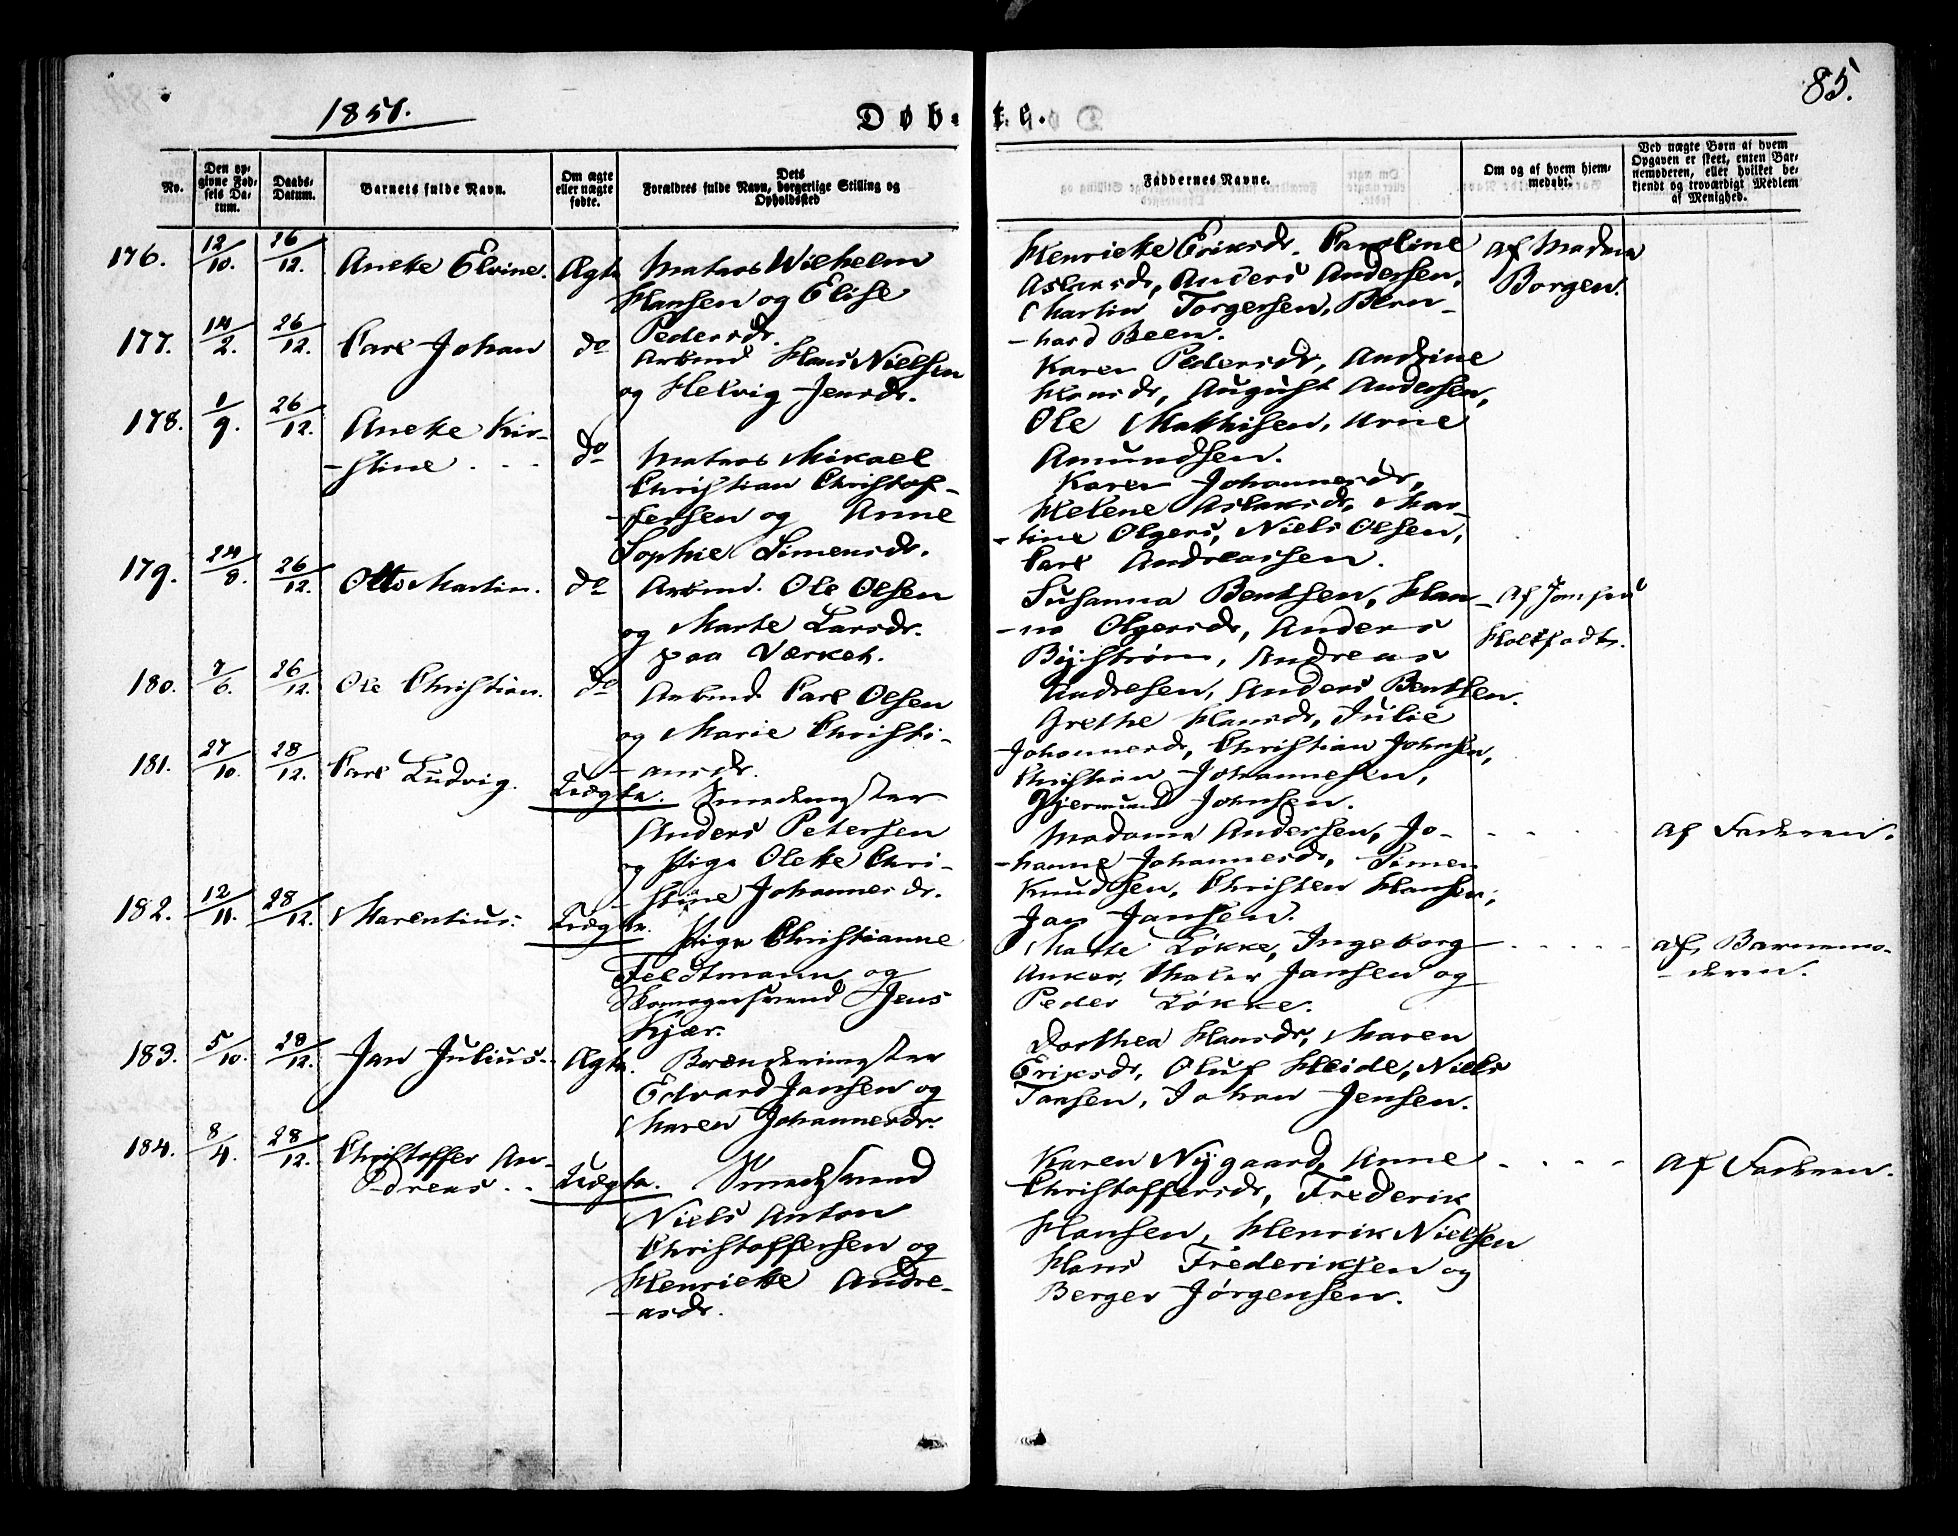 85.
1851.
Døbte.
No.
Den opgivne Fødsels Datum.
Daabs-Datum.
Barnets fulde Navn.
Om ægte eller uægte fødte.
Dets Forældres fulde Navn, borgerlige Stilling og Opholdssted
Faddernes Navne.
Om og af hvem hjemmedøbt.
Ved uægte Børn af hvem Opgaven er skeet, enten Barnemoderen, eller hvilket bekjendt og troværdigt Medlem af Menighed.
176. 12/10. 26/12. Anette Elvine. Ægte
Matros Wilhelm
Hansen og Elise
Pedersdr.
Henriette Eriksdr. Caroline
Aslaksdr, Anders Andersen,
Martin Torgersen, Bern-
-hard Been.
af Madam
Borgen.
177. 14/2. 26/12. Carl Johan do
Arbmd Hans Nielsen
og Helvig Jensdr.
Karen Pedersdr, Andrine
Hansdr, August Andersen,
Ole Mathisen, Arne
Amundsen.
178. 1/9. 26/12. Anette Kir-
-stine do
Matros Mikael
Christian Christof-
-fersen og Anne
Sophie Simensdr.
Karen Johannesdr,
Helene Aslaksdr, Mar-
-tine Olgers, Niels Olsen,
Carl Andreassen.
179. 24/8. 26/12. Otto Martin. do
Arbmd. Ole Olsen
og Marte Larsdr.
paa Værket.
Susanna Bentsen, Han-
-na Olgersdr, Anders
Bystrøm, Andreas
Andresen, Anders Bentsen.
Af Jomfru
Holtfodt.
180. 7/6. 26/12. Ole Christian. do
Arbmd Carl Olsen
og Marie Christi-
-ansdr.
Grethe Hansdr, Julie
Johannesdr, Christian Johnsen,
Christian Johannesen,
Gjermund Johnsen.
181. 27/10. 28/12. Carl Ludvig. Uægte.
Smedemester
Anders Petersen
og Pige Olette Chri-
-stine Johannesdr.
Madama Andersen, Jo-
-hanne Johannesdr, Simen
Knudsen, Christen Hansen,
Jan Jansen.
Af Faderen.
182. 12/11. 28/12. Marentius. Uægte.
Pige Christianne
Feldtmann og
Skomagersvend Jens
Kjær.
Marte Løkke, Ingeborg
Anker, Maler Jansen og
Peder Løkke.
af Barnemo-
-deren.
183. 5/10. 28/12. Jan Julius. Ægte.
Brændemester
Edvard Jansen og
Maren Johannesdr.
Dorthea Hansdr, Maren
Eriksdr, Oluf Heide, Niels
Jansen, Johan Jensen.
184. 8/4. 28/12. Christoffer An-
-dreas Uægte.
Smedsvend
Niels Anton
Christoffersen og
Henriette Andre-
-asdr.
Karen Nygaard, Anne
Christoffersdr, Frederik
Hansen, Henrik Nielsen
Hans Frederiksen og
Berger Jørgensen.
Af Faderen.